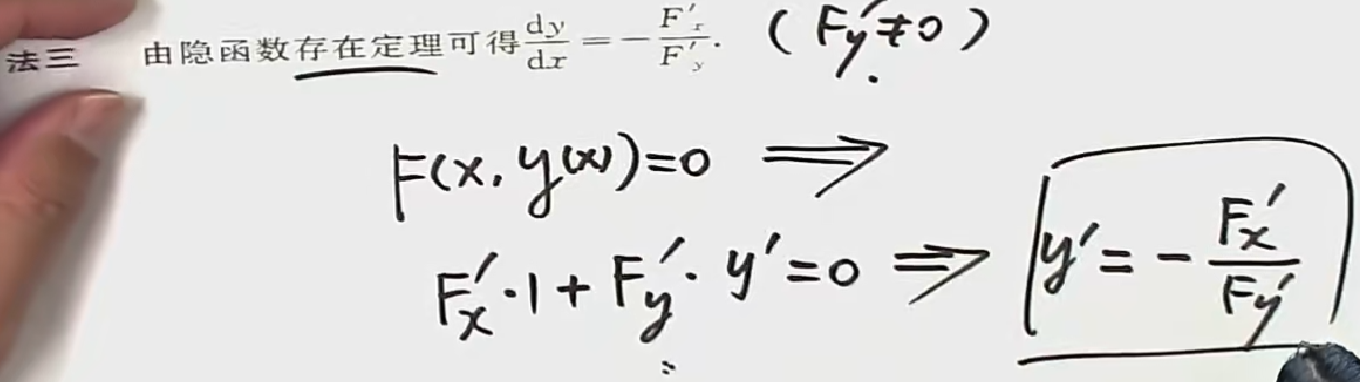 法三 由隐函数存在定理可得dy/dx=-F′x/F′y. (Fy′≠0)
F(x, y(x))=0 ⟹
Fx′·1+Fy′·y′=0 ⟹ y′=-Fx′/Fy′